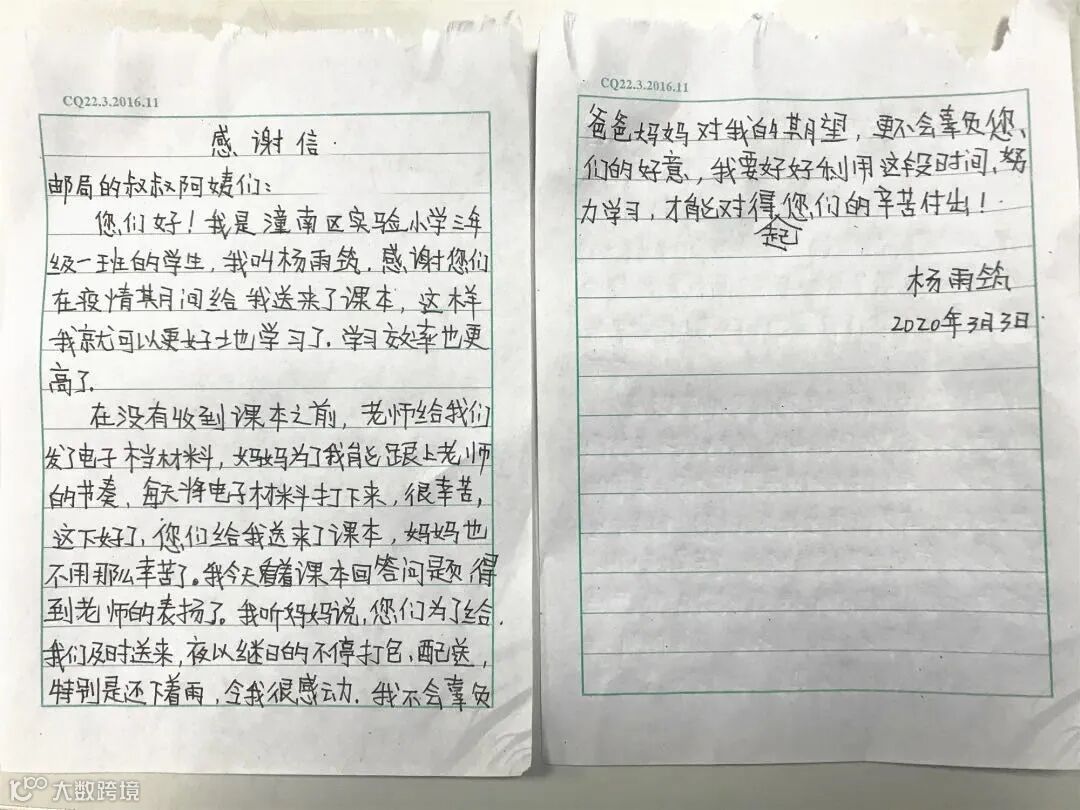 CQ22.3.2016.11
感谢信
邮局的叔叔阿姨们：
您们好！我是潼南区实验小学三年
级一班的学生，我叫杨雨筑．感谢您们
在疫情期间给我送来了课本，这样
我就可以更好地学习了．学习效率也更
高了．
在没有收到课本之前，老师给我们
发了电子档材料，妈妈为了我能跟上老师
的节奏，每天将电子材料打下来，很辛苦，
这下好了，您们给我送来了课本，妈妈也
不用那么辛苦了。我今天看着课本回答问题得
到老师的表扬了。我听妈妈说，您们为了给
我们及时送来，夜以继日的不停打包、配送，
特别是还下着雨，令我很感动．我不会辜负
CQ22.3.2016.11
爸爸妈妈对我的期望，更不会辜负您
们的好意，我要好好利用这段时间，努
力学习，才能对得起您们的辛苦付出！
杨雨筑
2020年3月3日
大数跨境